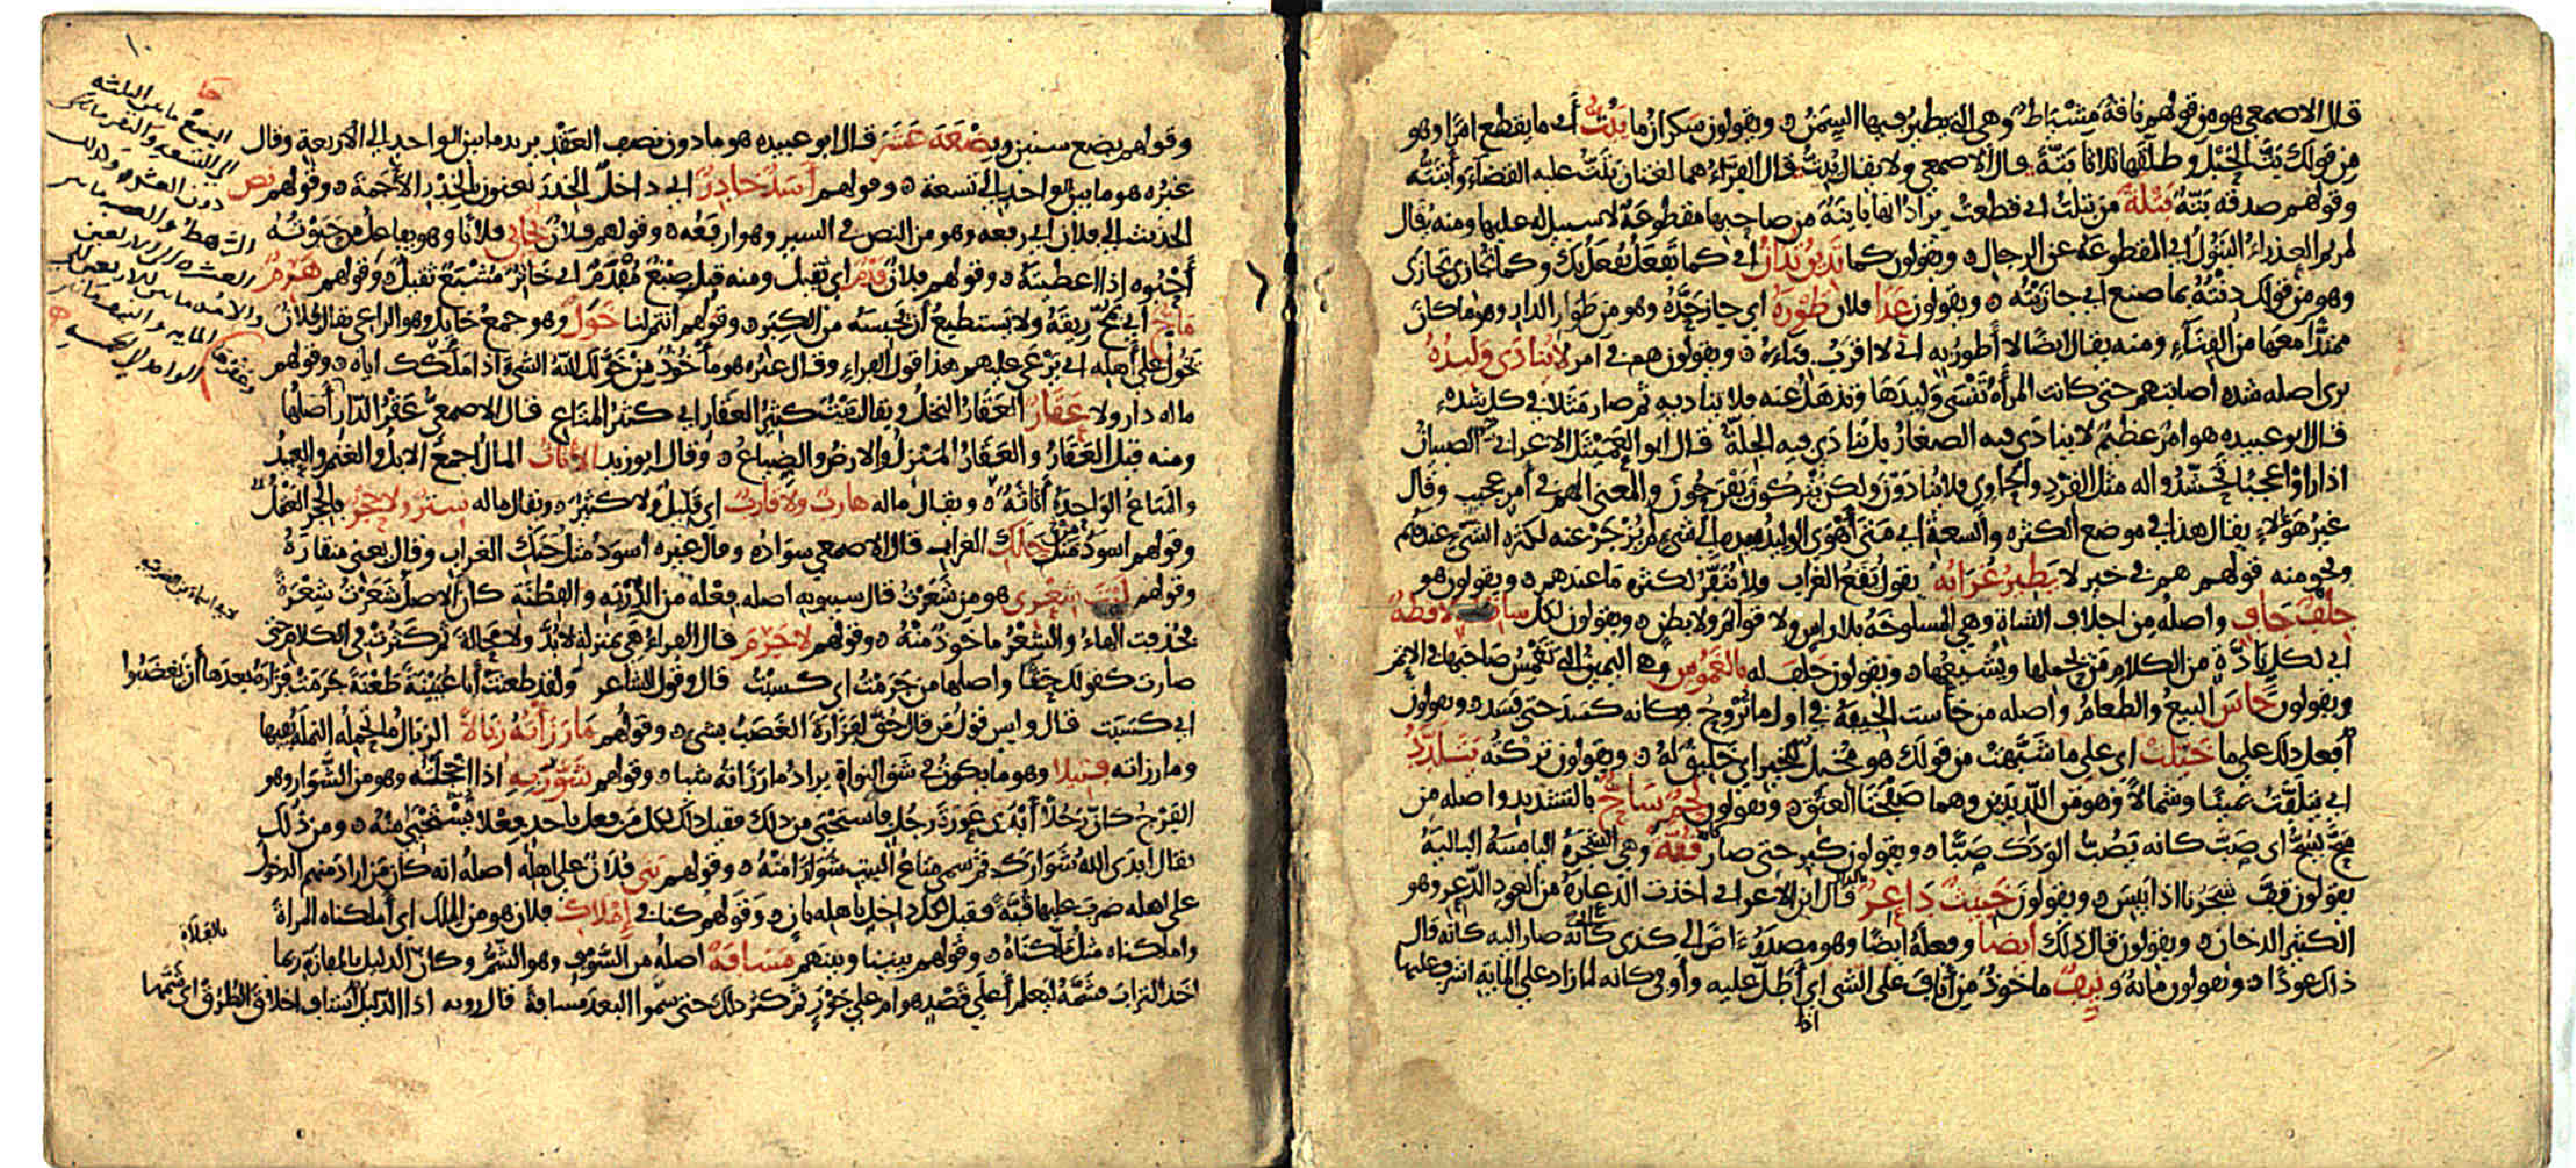 قال الاصمعي هو من قولهم ناقة مشياط وهي التي يطير فيها السمن ويقولون سكران ما يبت أي ما يقطع امرا وهو
من قولك بت الحبل وطلقها ثلاثا بتة قال الاصمعي ولا يقال يبت قال الفراء هما لغتان بتت عليه القضاء وأبتته
وقولهم صدقة بتة بتلة من بتلت اي قطعت يراد انها بائنة من صاحبها مقطوعة لا سبيل له عليها ومنه يقال
لمريم العذراء البتول اي المقطوعة عن الرجال ويقولون كما تدين تدان اي كما تفعل يفعل بك وكما تجازي تجازى
وهو من قولك دنته بما صنع اي جازيته ويقولون عدا فلان طوره اي جاز حده وهو من طوار الدار وهو ما كان
ممتدا معها من الفناء ومنه يقال ايضا لا أطور به اي لا اقرب فناءه ويقولون هم في امر لا ينادى وليده
نرى اصله شدة اصابتهم حتى كانت المرأة تنسى وليدها وتذهل عنه فلا تناديه ثم صار مثلا في كل شدة
قال ابو عبيدة هو امر عظيم لا ينادى فيه الصغار بل ينادى فيه الجلة قال ابو العميثل الاعرابي الصبيان
اذا راوا عجبا تحشدوا له مثل القرد والحاوي فلا ينادون ولكن يتركون يفرحون والمعنى انهم في أمر عجيب وقال
غير هؤلاء يقال هذا في موضع الكثرة والسعة اي متى أهوى الوليد بيده الى شيء لم يزجر عنه لكثرة الشيء عندهم
ونحو منه قولهم هم في خير لا يطير غرابه يقول يقع الغراب ولا ينفر لكثرة ما عندهم ويقولون هو
جلف جاف واصله من اجلاف الشاة وهي المسلوخة بلا راس ولا قوائم ولا بطن ويقولون لكل ساقطة لاقطة
اي لكل نادة من الكلام من يحملها ويشيعها ويقولون حلف له بالغموس وهي اليمين التي تغمس صاحبها في الاثم
ويقولون خاس البيع والطعام واصله من خاست الجيفة في اول ما تروح فكانه كسد حتى فسد ويقولون
أفعل ذلك على ما خيلت اي على ما شبهت من قولك هو مخيل للخير اي خليق له ويقولون تركته يتلدد
اي يتلفت يمينا وشمالا وهو من اللديدين وهما صفحتا العنق ويقولون لحم ساح بالتشديد واصله من
سح يسح اي صب كانه يصب الودك صبا ويقولون كبر حتى صار كانه قفة وهي الشجرة اليابسة البالية
يقولون قف شجرنا اذا يبس ويقولون خبيث داعر قال ابن الاعرابي اخذت الدعارة من العود الدعر وهو
الكثير الدخان ويقولون قال ذلك ايضا وفعله ايضا وهو مصدر ءاض الى كذى اي صار اليه كانه قال
ذلك عودا ويقولون مائة ونيف ماخوذ من أناف على الشي اي أطل عليه وأوفى كانه لما زاد على المائة اشرف عليها
١٠
وقولهم بضع سنين وبضعة عشر قال ابو عبيدة هو ما دون نصف العقد يريد ما بين الواحد الى الاربعة وقال
غيره هو ما بين الواحد الى تسعة وقولهم أسد خادر اي داخل الخدر يعنون بالخدر الأجمة وقولهم نص
الحديث الى فلان اي رفعه وهو من النص في السير وهو ارفعه وقولهم فلان يحابي فلانا وهو يفاعل من حبوته
أحبوه اذا اعطيته وقولهم فلان فدم اي ثقيل ومنه قيل صبغ مفدم اي خاثر مشبع ثقيل وقولهم هرم
ماج اي يمج ريقه ولا يستطيع أن يحبسه من الكبر وقولهم انتم لنا خول وهو جمع خايل وهو الراعي يقال فلان
يخول على أهله اي يرعى عليهم هذا قول الفراء وقال غيره هو مأخوذ من خولك الله الشي اذا ملكك اياه وقولهم
ماله دار ولا عقار العقار النخل ويقال بيت كثير العقار اي كثير المتاع قال الاصمعي عقر الدار أصلها
ومنه قيل العقار والعقار المنزل والارض والضياع وقال ابو زيد الأثاث المال اجمع الابل والغنم والعبيد
والمتاع الواحدة أثاثة ويقال ماله هارب ولا قارب اي قليل ولا كثير ويقال ماله ستر ولا حجر الحجر العقل
وقولهم اسود مثل حلك الغراب قال الاصمعي سواده وقال غيره اسود مثل حنك الغراب وقال يعني منقاره
وقولهم ليت شعري هو من شعرت قال سيبويه اصله فعلة من الدربة والفطنة كان الاصل شعرت شعرة
فحذفت الهاء والشعر ماخوذ منه وقولهم لا جرم قال الفراء هي بمنزلة لا بد ولا محالة ثم كثرت في الكلام حتى
صارت كقولك حقا واصلها من جرمت اي كسبت قال وقول الشاعر ولقد طعنت أبا عيينة طعنة جرمت فزارة بعدها أن يغضبوا
اي كسبت قال وليس قول من قال حق لفزارة الغضب بشيء وقولهم ما رزأته زبالا الزبال ما تحمله النملة بفيها
وما رزاته فتيلا وهو ما يكون في شق النواة يراد ما رزأته شيا وقولهم شور به اذا اخجله وهو من الشوار وهو
الفرج كان رجلا أبدى عورة رجل فاستحيى من ذلك فقيل ذلك لكل من فعل باحد فعلا يستحيى منه ومن ذلك
يقال ابدى الله شوارك ثم سمي متاع البيت شوارا منه وقولهم بنى فلان على اهله اصله انه كان من اراد منهم الدخول
على اهله ضرب عليها قبة فقيل لكل داخل باهله بان وقولهم كنا في إملاك فلان هو من الملك اي أملكناه المراة
واملكناه مثل ملكناه وقولهم بيننا وبينهم مسافة اصله من السوف وهو الشم وكان الدليل بالفلاة ربما
اخذ التراب فشمه ليعلم أعلى قصد هو ام على جور ثم كثر ذلك حتى سموا البعد مسافة قال روبة اذا الدليل استاف اخلاق الطرق اي شمها
بالفلاة